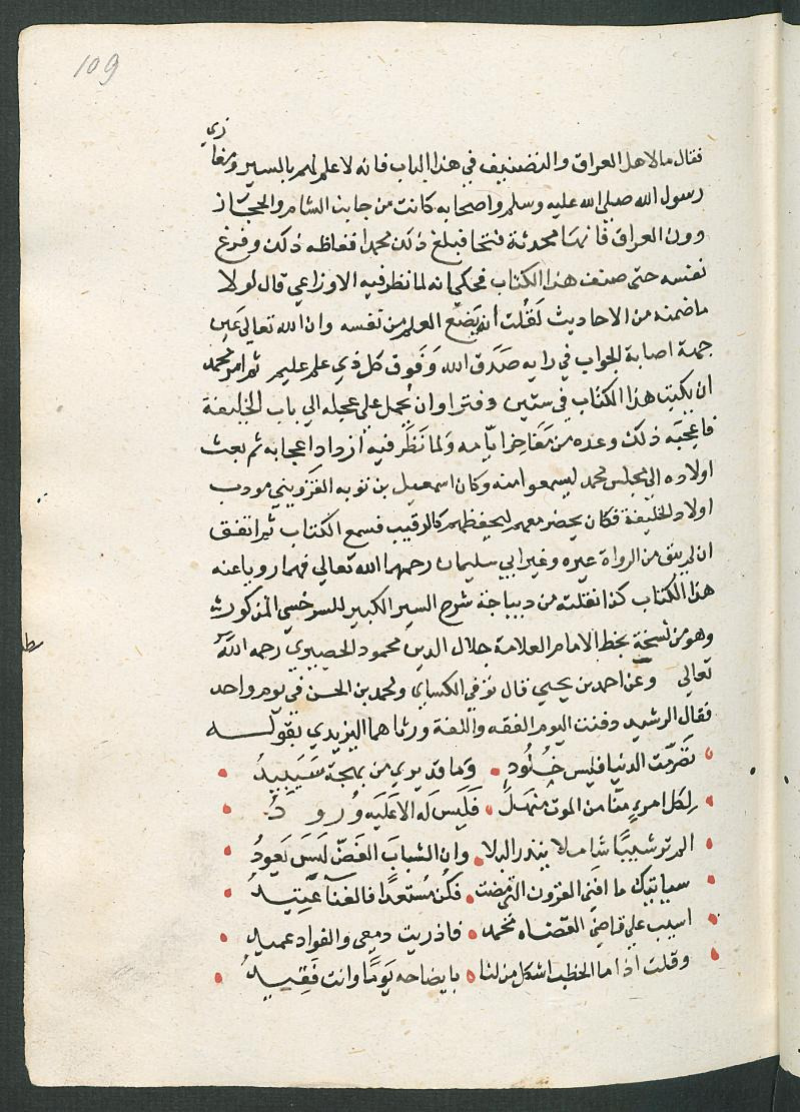 109
فقال ما لاهل العراق والتصنيف في هذا الباب فانه لا علم لهم بالسير ومغازي
رسول الله صلى الله عليه وسلم واصحابه كانت من جانب الشام والحجاز
دون العراق فانها محدثة فتحا فبلغ ذلك محمدا فغاظه ذلك وفرغ
نفسه حتى صنف هذا الكتاب فحكي انه لما نظر فيه الاوزاعي قال لولا
ما ضمنه من الاحاديث لَقُلت انه يَضَع العلم من نفسه وان الله تعالى عين
جهة اصابة الجواب في رايه صَدَق الله وَفَوق كل ذي علم عليم ثم امر محمد
ان يكتب هذا الكتاب في ستين دفترا وان يُحمل على عجله الى باب الخليفة
فاعجبَه ذلك وعده من مَفَاخر ايّامه وَلما نَظَر فيه ازداد اعجابه ثم بعث
اولاده الى مجلس محمد ليسمعوا منه وكان اسمعيل بن توبه القزويني مودب
اولاد الخليفة فكان يحضر معهم ليحفظهم كالرقيب فسمع الكتاب ثم اتفق
ان لم يبق من الرواة غيره وغير ابي سليمان رحمهما الله تعالى فهما رويا عنه
هذا الكتاب كذا نقلته من ديباجة شرح السير الكبير للسرخسي المذكور
وهو من نسخة بخط الامام العلامة جلال الدين محمود الحصيري رحمه الله
تعالى وعن احمد بن يحيى قال توفي الكساي ومحمد بن الحسن في يوم واحد
فقال الرشيد دفنت اليوم الفقه واللغة ورثاهما اليزيدي بقوله
تصَرّمت الدنيا فليس خُلُودٍ وَما قد يرى من بهجة سَيَبيدُ
لِكل امرىٍ منّا من الموت مَنهَلٌ فَلَيسَ لَه الا عَلَيه وُرودُ
الم تر شَيبًا شاملا ينذر البلا وان الشبابَ الغَضّ لَيسَ يَعودُ
سياتيك ما افنى القرون التى مضت فكُن مُستَعدًا فالفنآ عَتيدُ
اسيت على قاضي القضاه محمد فاذريت دمعى والفواد عميد
وقلت اذا ما الخطب اشكل من لنا بايضاحه يَومًا وانت فَقِيدُ